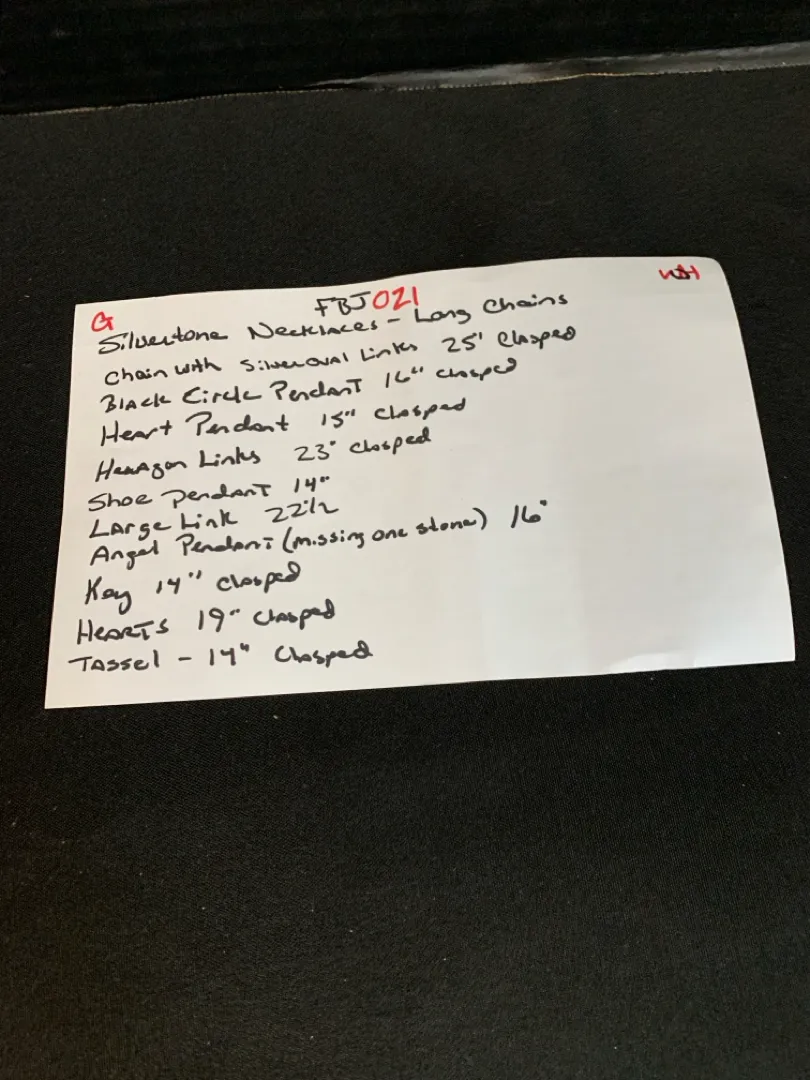 G FBJ021 WH
Silvertone Necklaces - Long Chains
Chain with Silver Oval Links 25' Clasped
Black Circle Pendant 16" Clasped
Heart Pendant 15" Clasped
Hexagon Links 23" Clasped
Shoe Pendant 14"
Large Link 22 1/2
Angel Pendant (missing one stone) 16"
Key 14" Clasped
Hearts 19" Clasped
Tassel - 14" Clasped